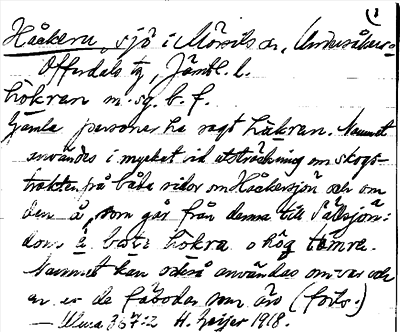 (1
Håckern, sjö i Mörsils sn, Undersåkers o
Offerdals tg, Jämtl. l.
hòkran m. sg. b. f.
Gamla personer ha sagt hàkran. Namnet
användes i mycket vid utsträckning om skogs-
trakten på båda sidor om Håckersjön och om
den å, som går från denna till Sällsjön:
dom å bete hòkra o hög tömra.
Namnet kan också användas om var och
en av de fäbodar som äro (forts.)
Ulma 367:2 H. Geijer 1918.